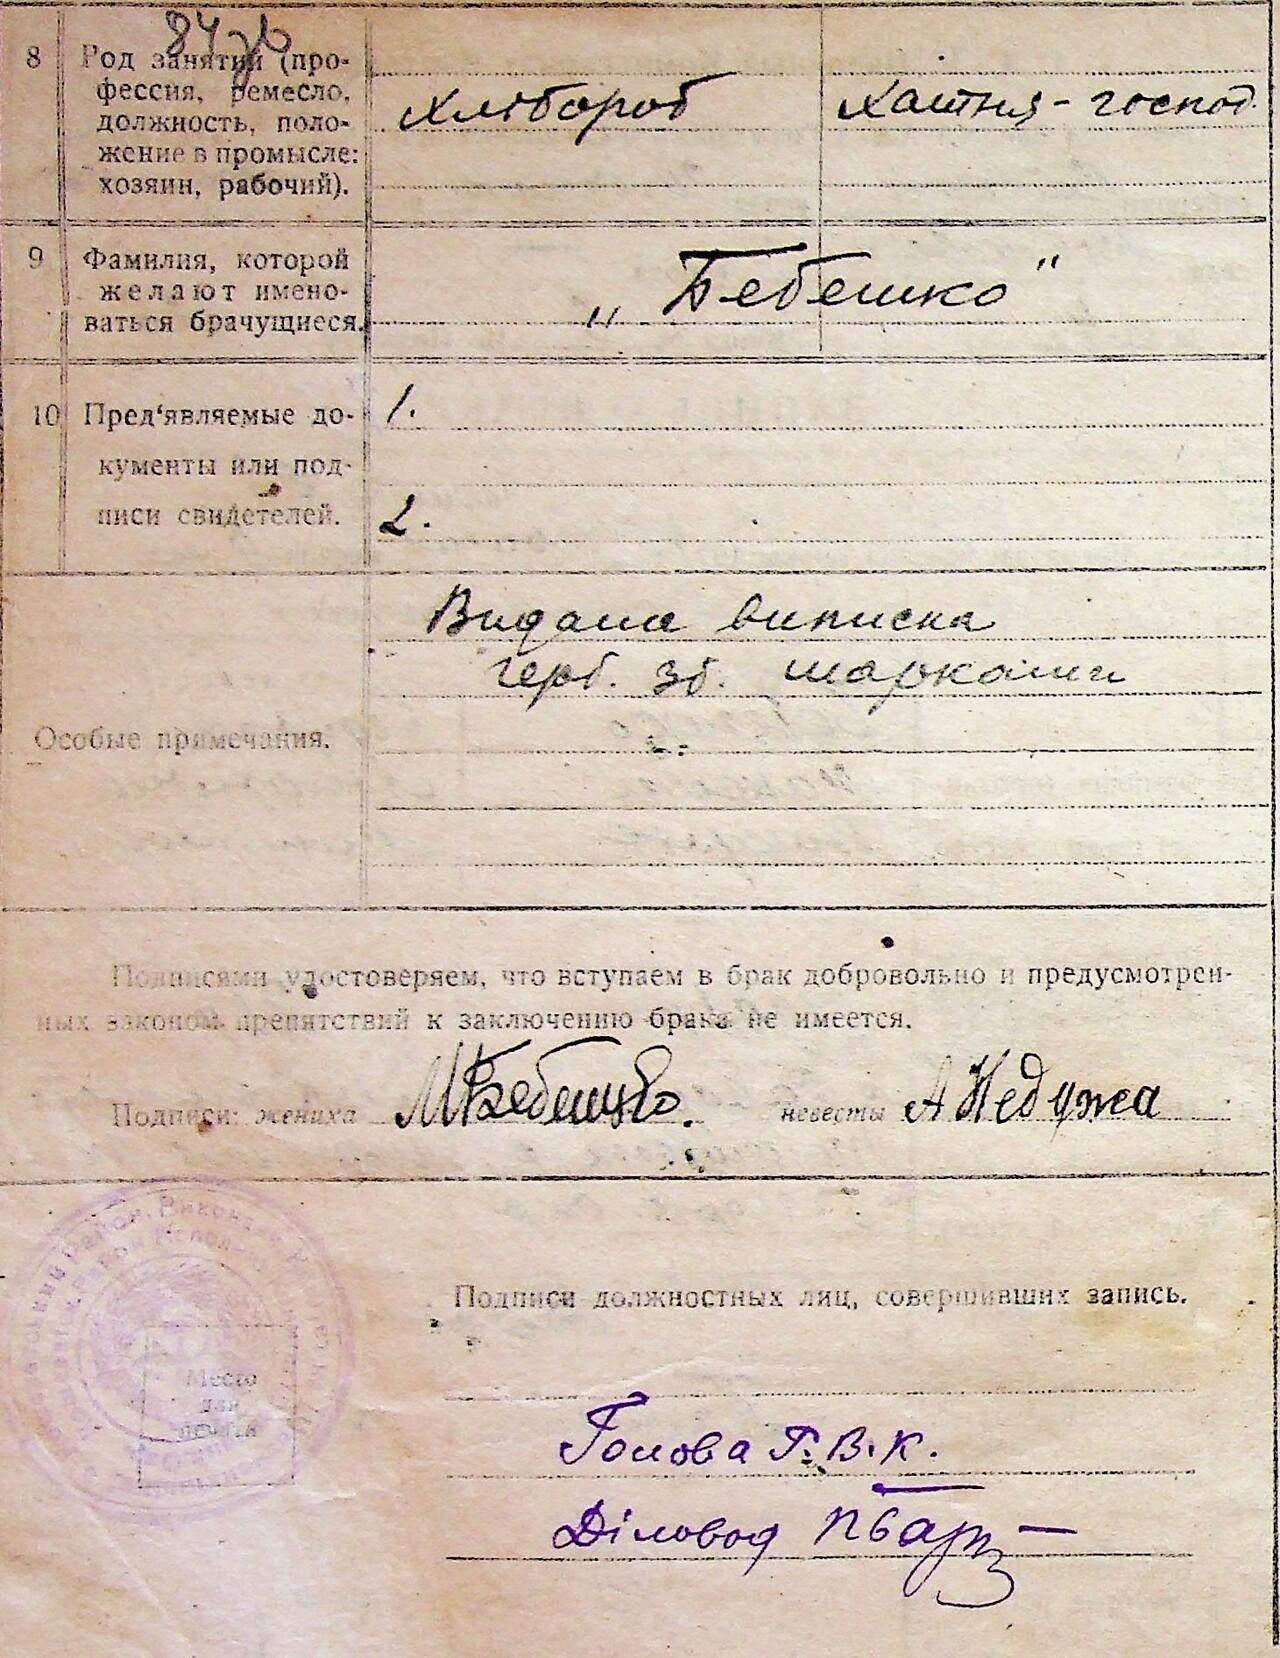 84 зв
8 Род занятий (про-
фессия, ремесло,
должность, поло-
жение в промысле:
хозяин, рабочий).
Хлібороб
Хатня - господ.
9 Фамилия, которой
желают имено-
ваться брачущиеся.
„Бебешко"
10 Пред‘являемые до-
кументы или под-
писи свидетелей.
1.
2.
Особые примечания.
Видана виписка
герб. зб. марками
Подписями удостоверяем, что вступаем в брак добровольно и предусмотрен-
ных законом препятствий к заключению брака не имеется.
Подписи: жениха МБебешко. невесты А Недужа
Район. Викон
Место
для
печати
Подписи должностных лиц, совершивших запись.
Голова Р.В.К.
Діловод